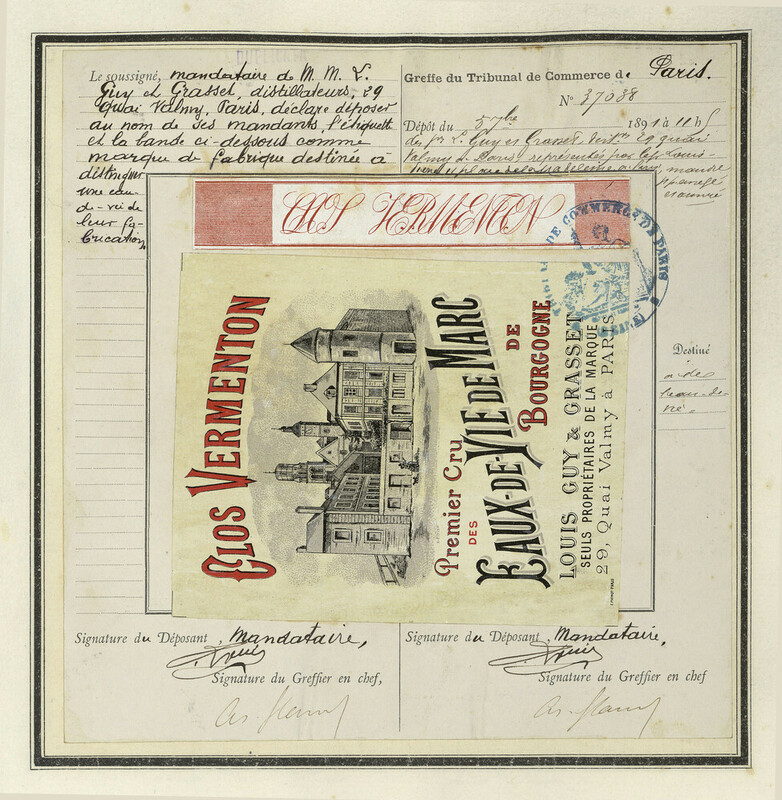 Le soussigné, mandataire de M. M. L.
Guy et Grasset, distillateurs, 29
quai Valmy, Paris, déclare déposer
au nom de ses mandants, l'étiquette
et la bande ci-dessous comme
marque de fabrique destinée à
distinguer
une eau-
de-vie de
leur fa-
brication
Greffe du Tribunal de Commerce de Paris.
N° 37038
Dépôt du 1891 à 11 h
des L. Guy et Grasset, 29 quai
Valmy à Paris, représentés par Louis
CLOS VERMENTON
DE COMMERCE DE PARIS
CLOS VERMENTON
Premier Cru
DES
EAUX-DE-VIE DE MARC
DE
BOURGOGNE
LOUIS GUY & GRASSET
SEULS PROPRIÉTAIRES DE LA MARQUE
29, Quai Valmy à PARIS
Destiné
à des
eau-de-
vie.
Signature du Déposant, Mandataire,
Signature du Greffier en chef,
Signature du Déposant, Mandataire,
Signature du Greffier en chef